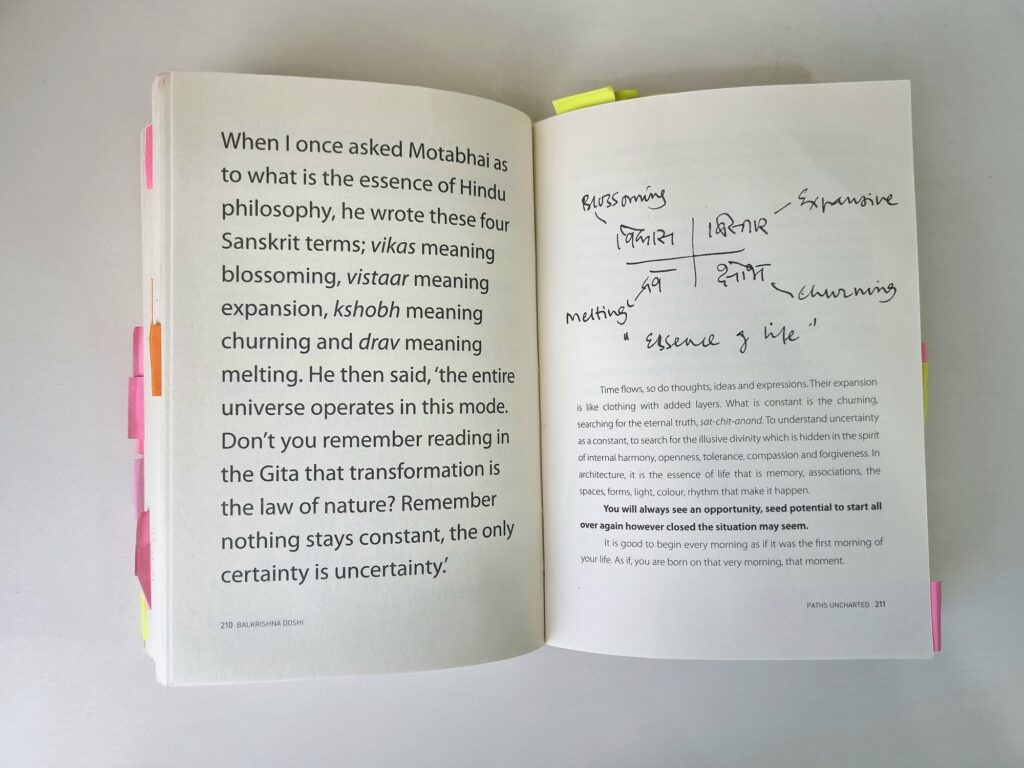 When I once asked Motabhai as
to what is the essence of Hindu
philosophy, he wrote these four
Sanskrit terms; vikas meaning
blossoming, vistaar meaning
expansion, kshobh meaning
churning and drav meaning
melting. He then said, ‘the entire
universe operates in this mode.
Don’t you remember reading in
the Gita that transformation is
the law of nature? Remember
nothing stays constant, the only
certainty is uncertainty.’
210 BALKRISHNA DOSHI
Blossoming
Expansive
विकास विस्तार
द्रव क्षोभ
Melting
churning
"Essence of life"
Time flows, so do thoughts, ideas and expressions. Their expansion
is like clothing with added layers. What is constant is the churning,
searching for the eternal truth, sat-chit-anand. To understand uncertainty
as a constant, to search for the illusive divinity which is hidden in the spirit
of internal harmony, openness, tolerance, compassion and forgiveness. In
architecture, it is the essence of life that is memory, associations, the
spaces, forms, light, colour, rhythm that make it happen.
You will always see an opportunity, seed potential to start all
over again however closed the situation may seem.
It is good to begin every morning as if it was the first morning of
your life. As if, you are born on that very morning, that moment.
PATHS UNCHARTED 211